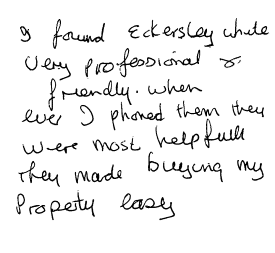 I found Eckersley white
Very professional &
friendly. when
ever I phoned them they
were most helpfull
they made buying my
Property easy